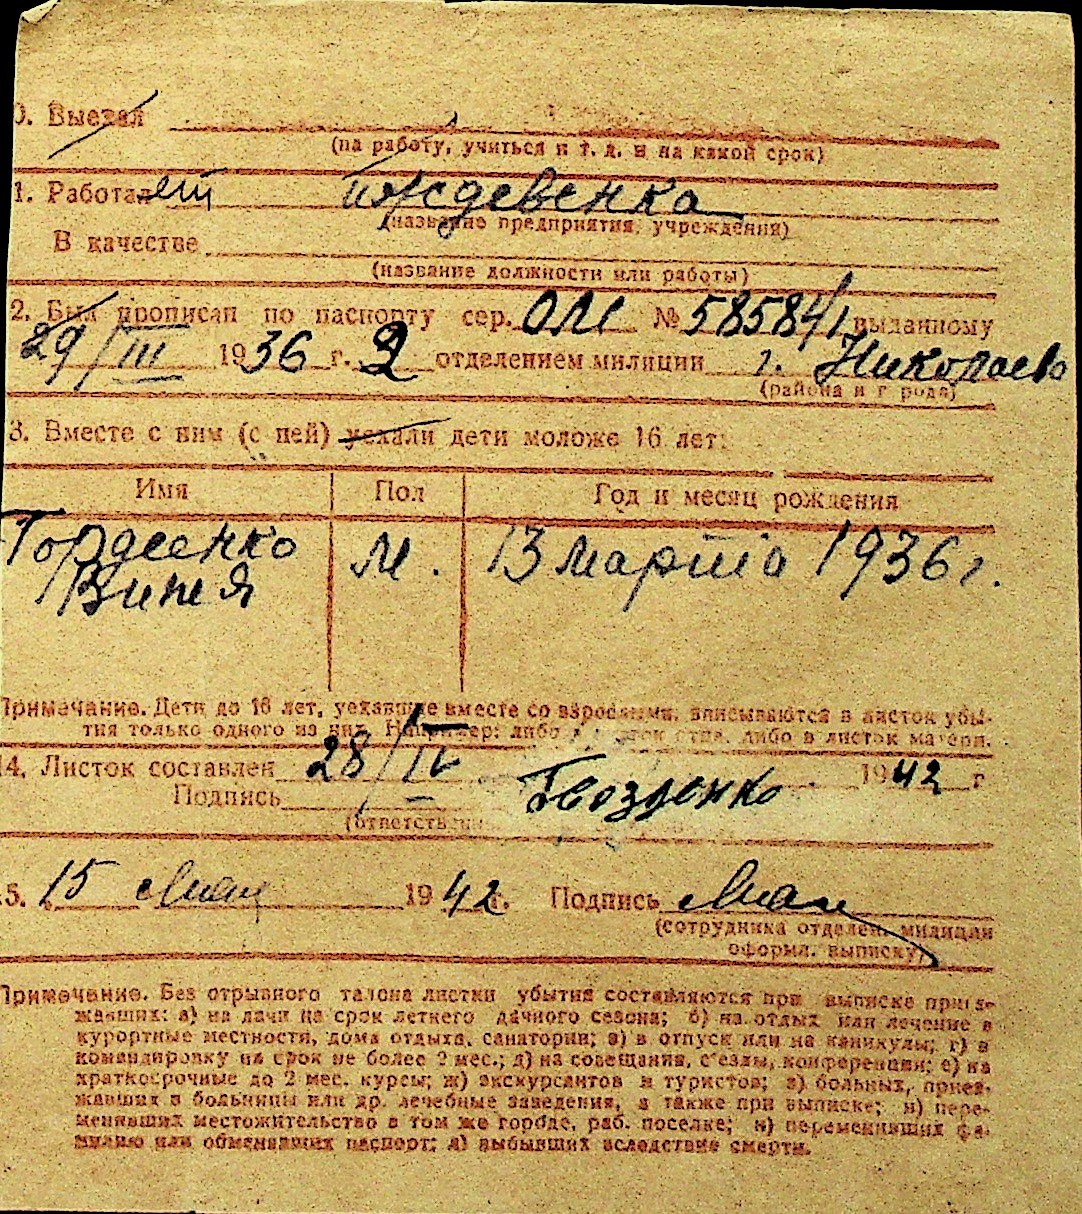 0. Выехал
(на работу, учиться и т. д. и на какой срок)
1. Работает иждевенка
(название предприятия, учреждения)
В качестве
(название должности или работы)
2. Был прописан по паспорту сер. ОМ № 585841 выданному
29/III 1936 г. 2 отделением милиции г. Николаево
(района и г рода)
3. Вместе с ним (с ней) уехали дети моложе 16 лет:
Имя Пол Год и месяц рождения
Гордеенко м. 13 марта 1936 г.
Витя
Примечание. Дети до 16 лет, уехавшие вместе со взрослыми, вписываются в листок убы-
тия только одного из них. Например: либо в листок отца, либо в листок матери.
14. Листок составлен 28/IV 1942 г
Подпись Гвозденко
(ответствен
5. 15 мая 1942 г. Подпись
(сотрудника отделен. милиции
оформл. выписку)
Примечание. Без отрывного талона листки убытия составляются при выписке приез-
жавших: а) на дачи на срок летнего дачного сезона; б) на отдых или лечение в
курортные местности, дома отдыха, санатории; в) в отпуск или на каникулы; г) в
командировку на срок не более 2 мес.; д) на совещания, с'езды, конференции; е) на
краткосрочные до 2 мес. курсы; ж) экскурсантов и туристов; з) больных, приез-
жавших в больницы или др. лечебные заведения, а также при выписке; и) пере-
менивших местожительство в том же городе, раб. поселке; к) переменивших фа-
милию или обменявших паспорт; л) выбывших вследствие смерти.